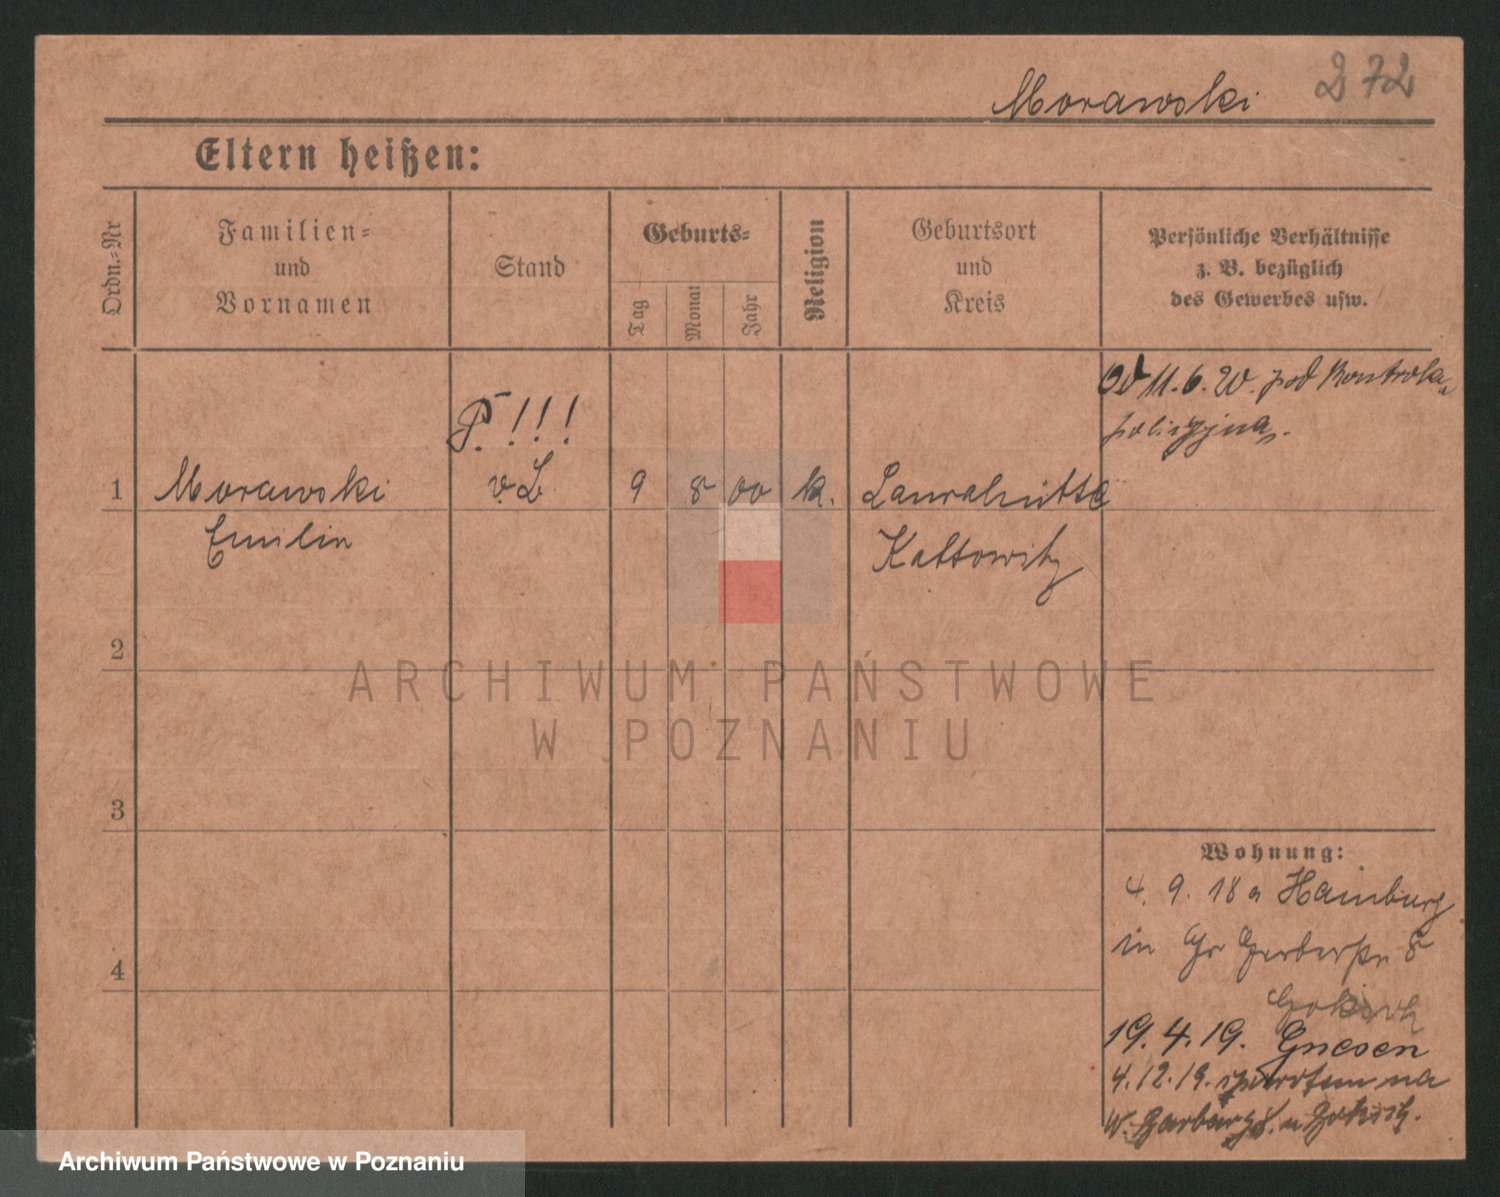 272
Morawski
Eltern heißen:
Ordn.-Nr
Familien-
und
Vornamen
Stand
Geburts-
Tag
Monat
Jahr
Religion
Geburtsort
und
Kreis
Persönliche Verhältnisse
z. B. bezüglich
des Gewerbes usw.
Od 11.6.20. pod kontrolą
policyjną.
P. !!!
1 Morawski v. L. 9 8 00 k. Laurahütte
Emilin
Kattowitz
2
ARCHIWUM PAŃSTWOWE
W POZNANIU
3
Wohnung:
4. 9. 18 a Hamburg
in Gr Gerberstr 8
4
19. 4. 19. Gnesen
4.12.19. na
W. Garbary 8. u
Archiwum Państwowe w Poznaniu